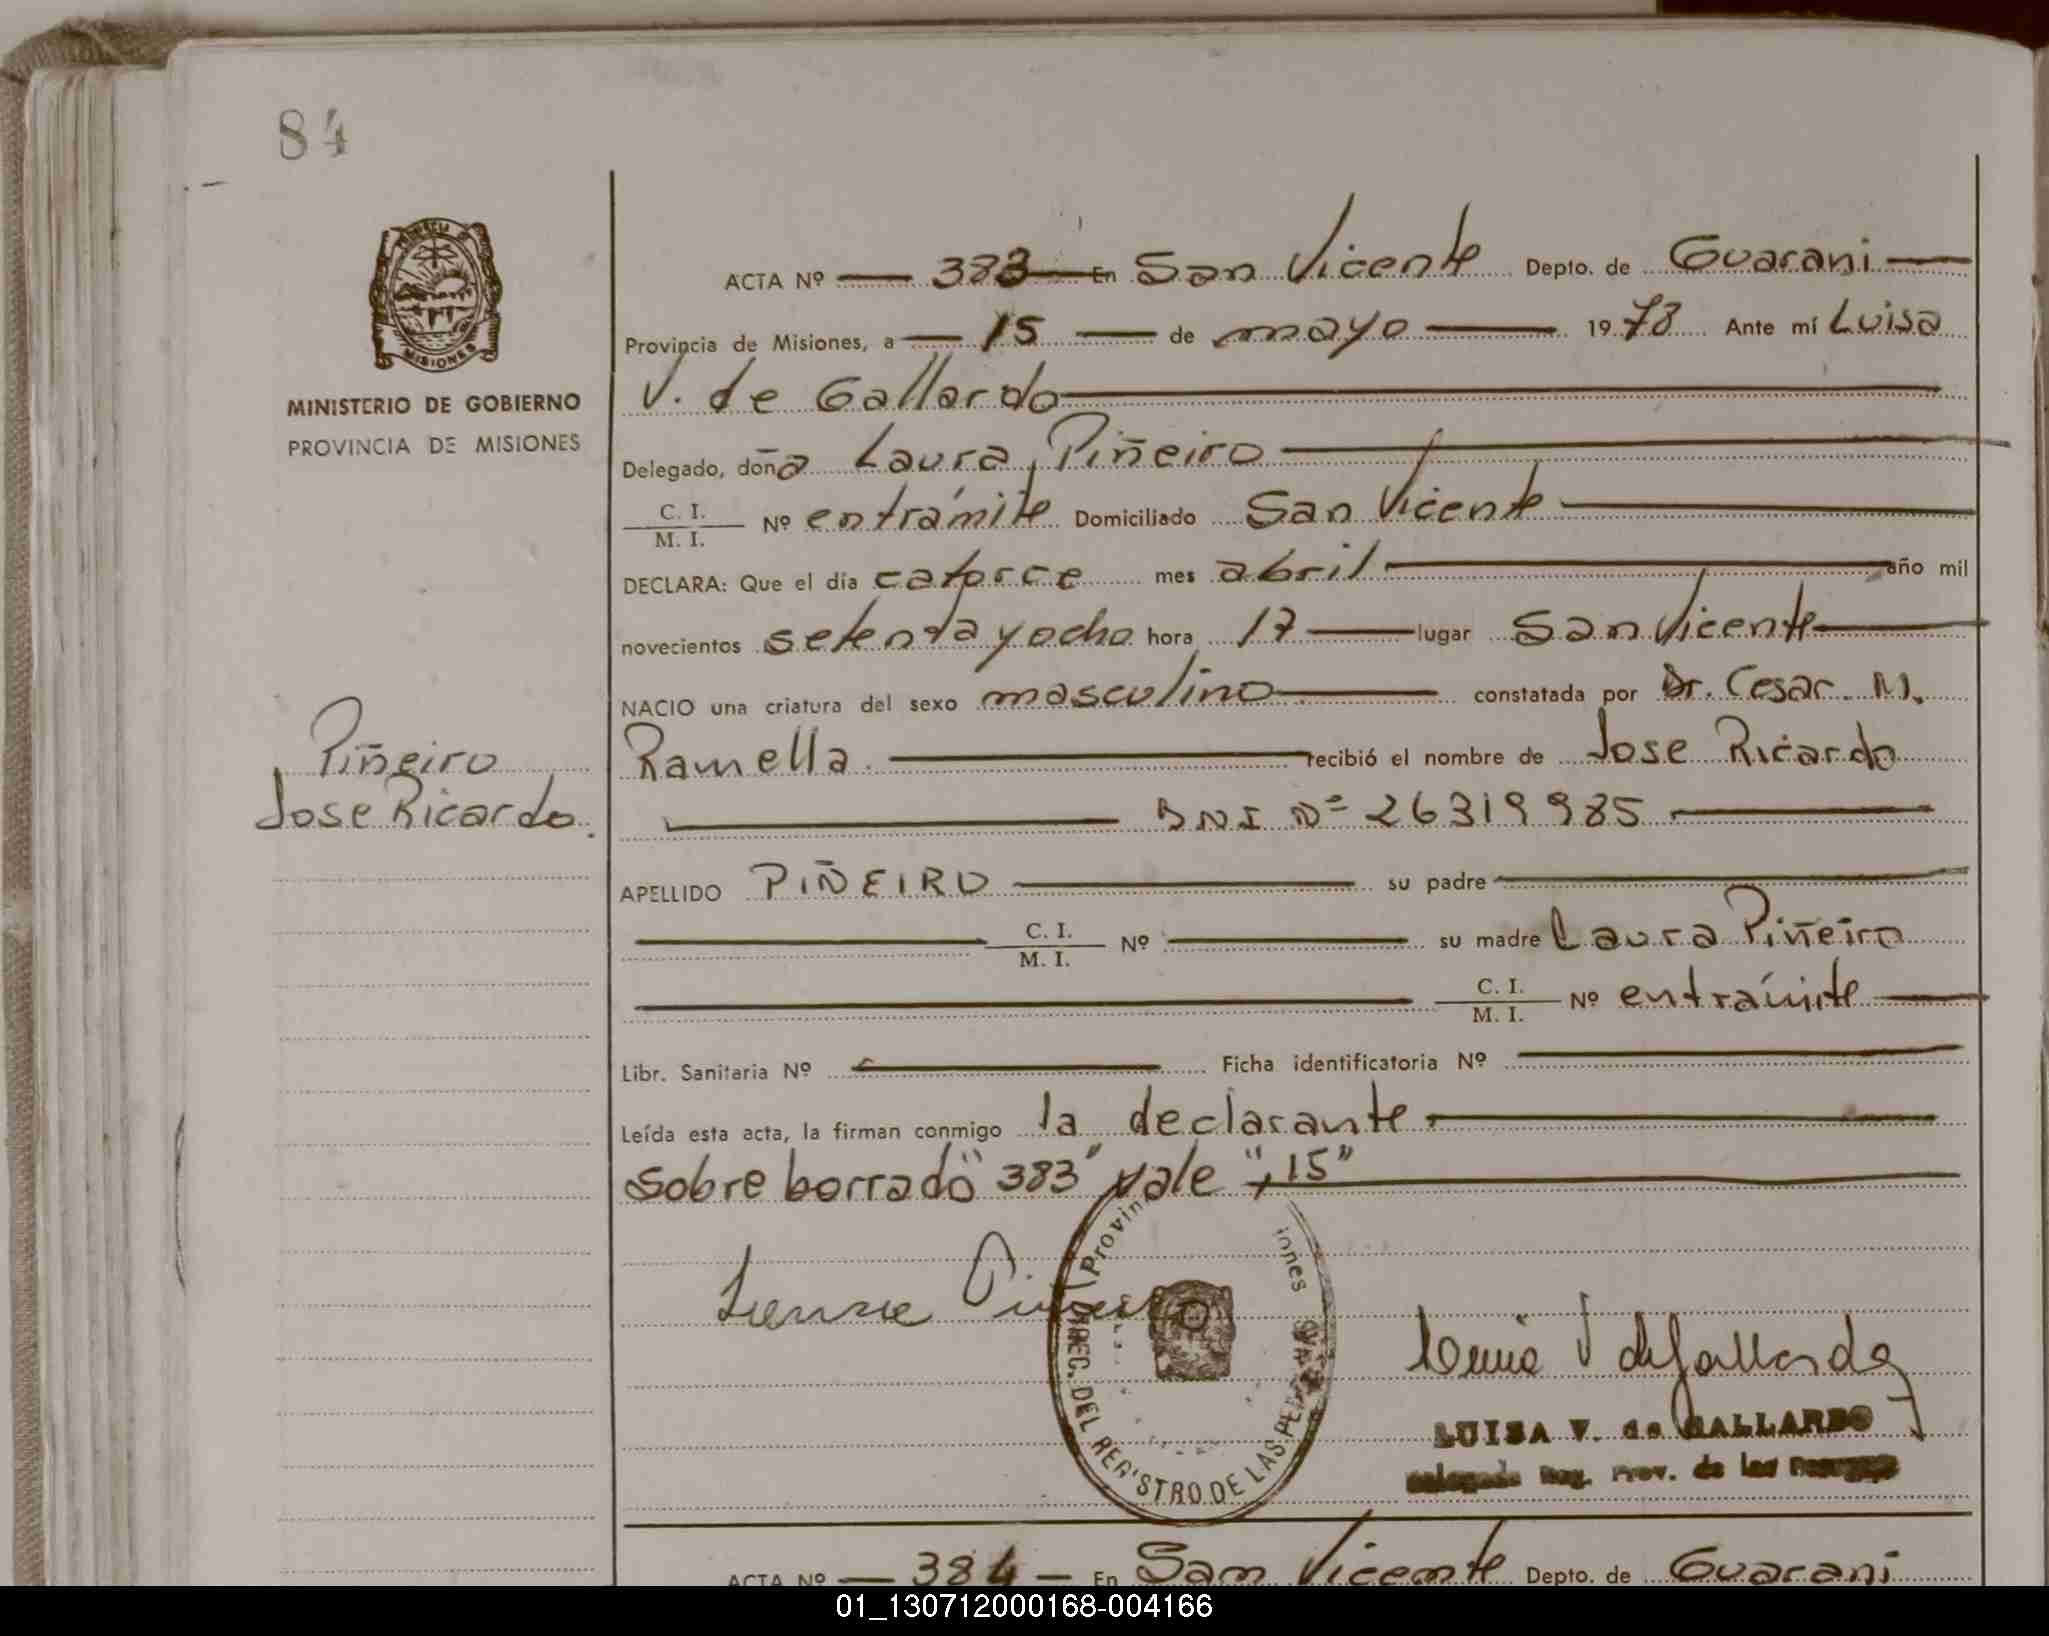 84
MISIONES
MINISTERIO DE GOBIERNO
PROVINCIA DE MISIONES
Piñeiro
Jose Ricardo.
ACTA Nº 383 En San Vicente Depto. de Guarani
Provincia de Misiones, a 15 de mayo 1978 Ante mí Luisa
V. de Gallardo
Delegado, doña Laura Piñeiro
C. I. / M. I. Nº entrámite Domiciliado San Vicente
DECLARA: Que el día catorce mes abril año mil
novecientos setenta y ocho hora 17 lugar San Vicente
NACIO una criatura del sexo masculino constatada por Dr. Cesar. M.
Ramella. recibió el nombre de Jose Ricardo
DNI Nº 26319985
APELLIDO PIÑEIRO su padre
C. I. / M. I. Nº su madre Laura Piñeiro
C. I. / M. I. Nº entrámite
Libr. Sanitaria Nº Ficha identificatoria Nº
Leída esta acta, la firman conmigo la declarante
Sobre borrado "383" vale ", 15"
Provin iones
DIREC. DEL REGISTRO DE LAS PERSONAS
Luisa V de Gallardo
LUISA V. de GALLARDO
Delegada Reg. Prov. de las Personas
ACTA Nº 384 En San Vicente Depto. de Guarani
01_130712000168-004166